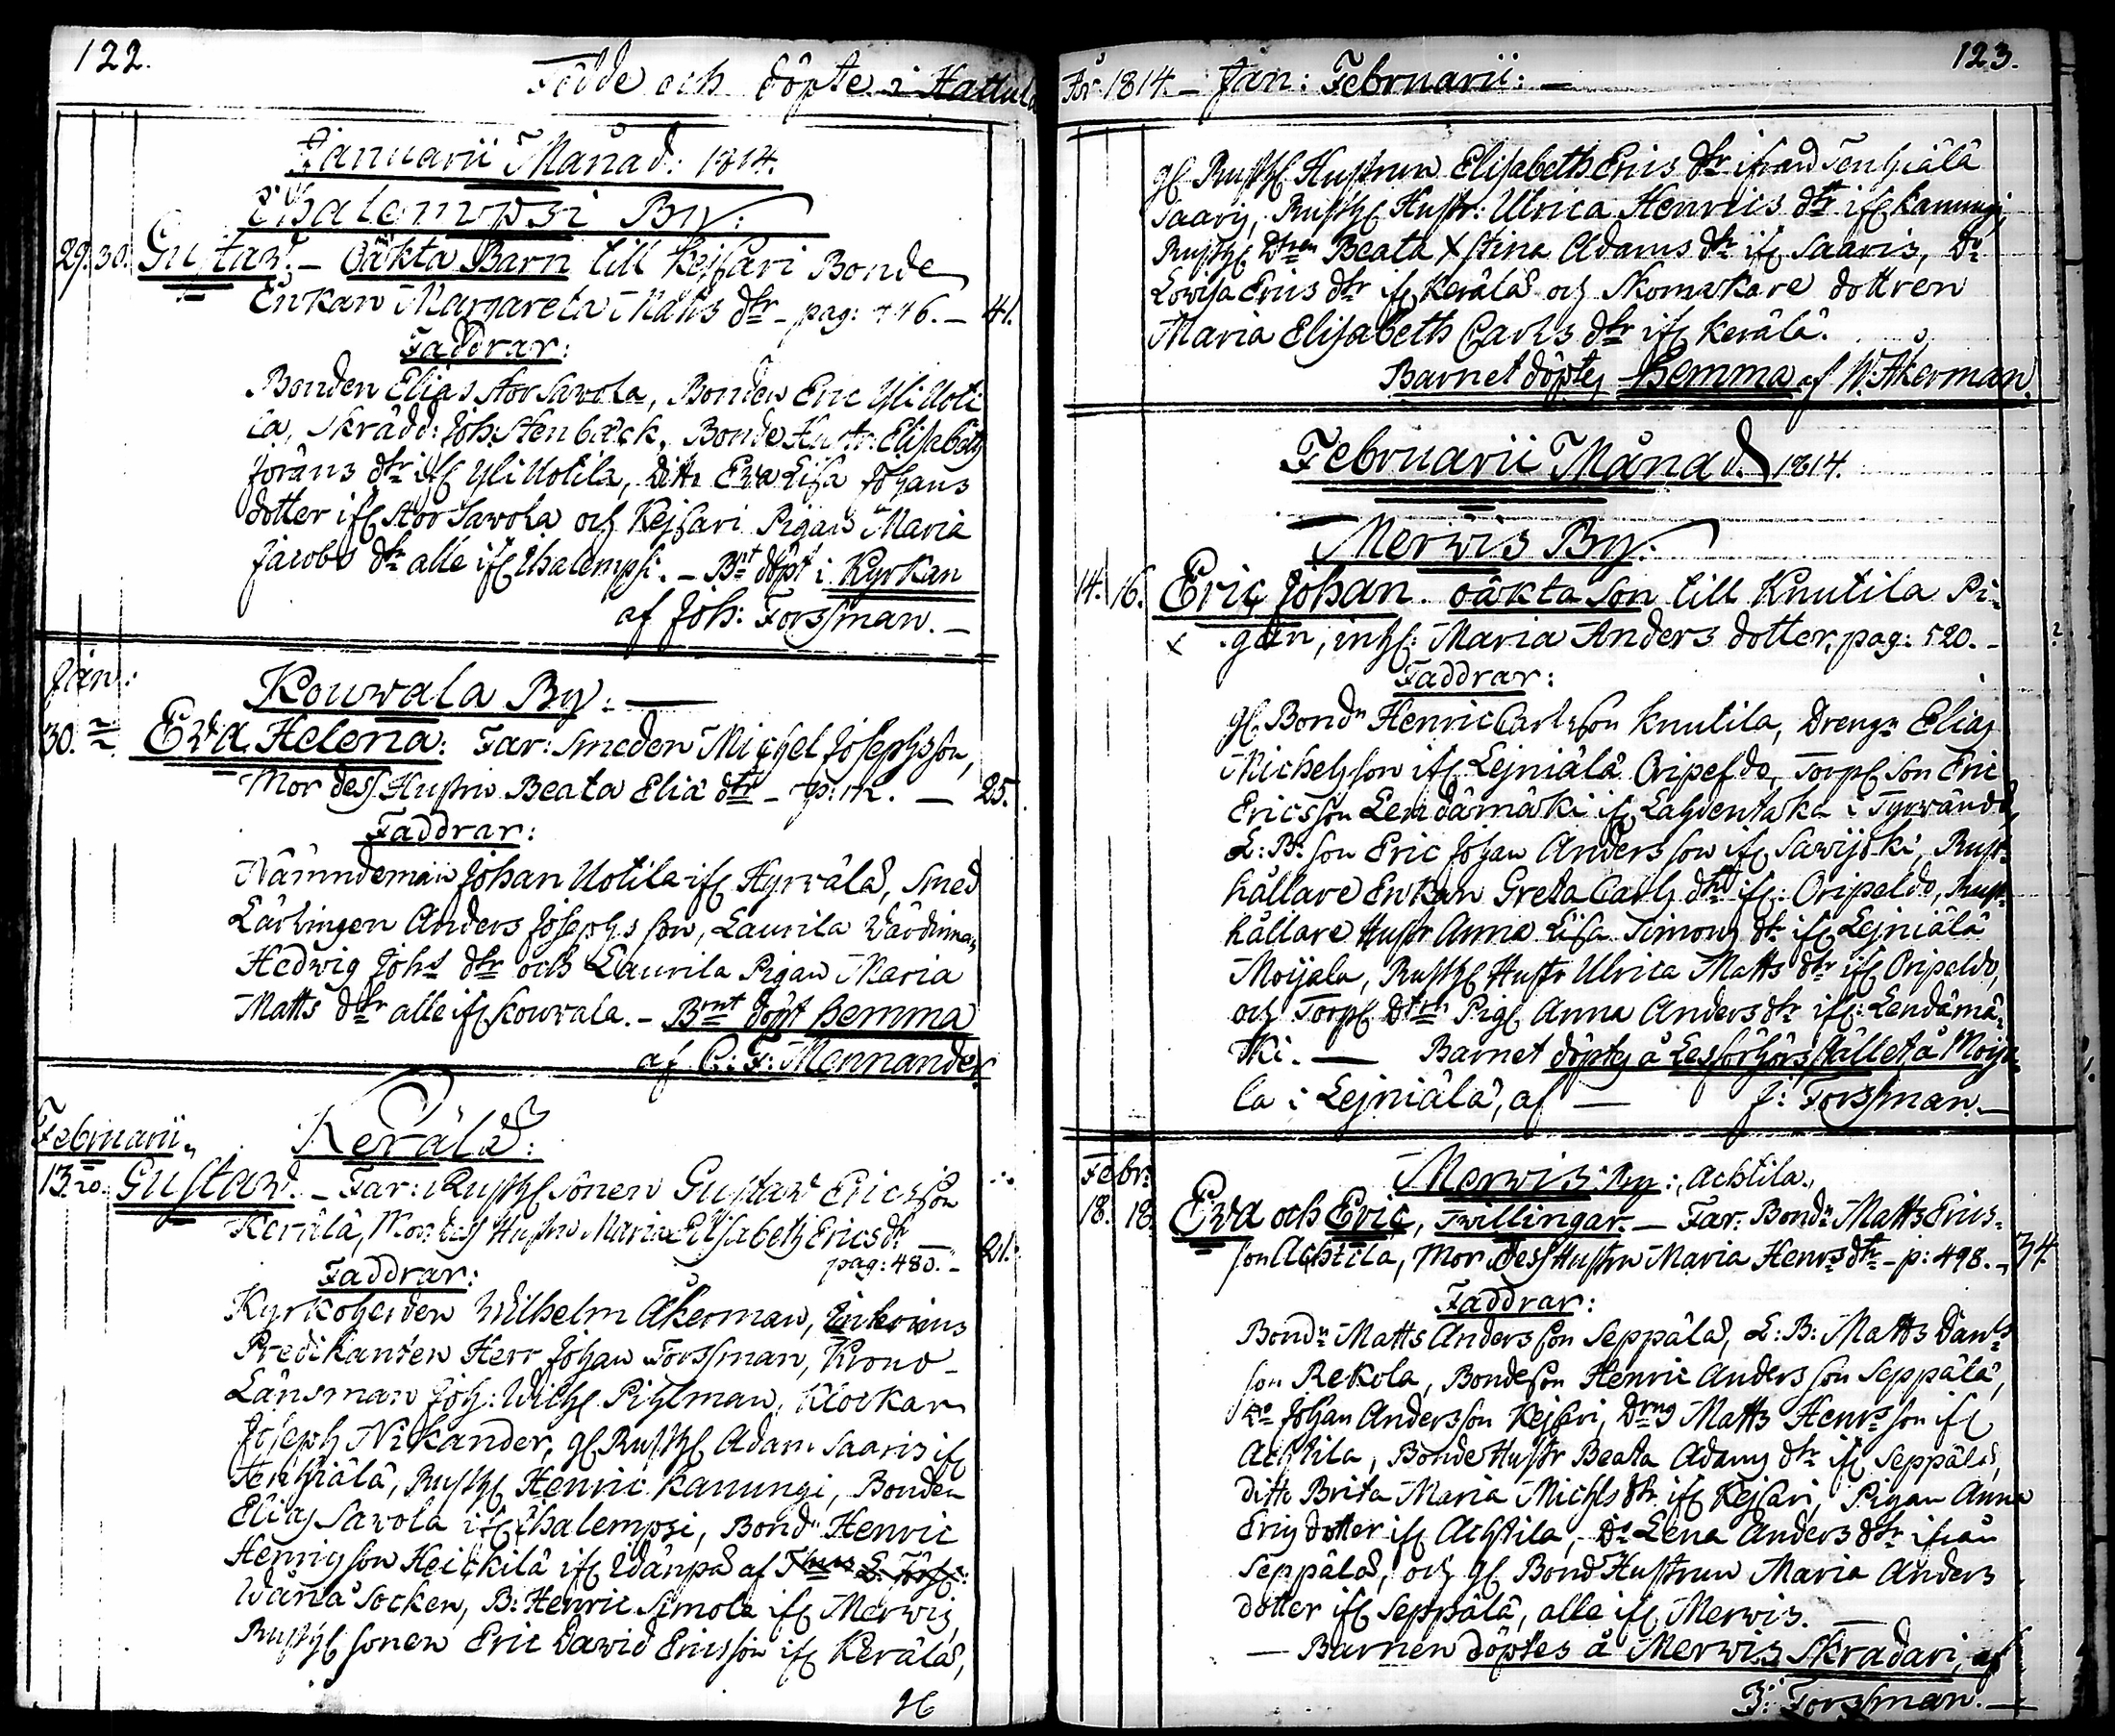 122.
Födde och döpte i Hattula
Januarii Månad. 1814.
Ihalempsi By:
29. 30. Gustav. – Oäkta Barn till Kejsari Bonde
Enkan Margareta Matts dtr – pag: 46. – 41.
Faddrar:
Bonden Elias Stor Savola, Bonden Eric Yli Uoti
la, Skrädd: Joh: Stenbäck, Bonde Hustr: Elisabeth
Jörans dtr ifr Yli Uotila, Ditto Eva Lisa Johans
dotter ifr Stor Savola och Kejsari Pigan Maria
Jacobs dtr alle ifr Ihalempsi. – Bnt döpt i Kyrkan
af Joh: Forssman. –
Jan:
Kouwala By. —
30. Eva Helena: Far: Smeden Michel Josephsson,
Mor dess Hustru Beata Elia dtr – – 25.
Faddrar:
Nämndeman Johan Uotila ifr Hyrvälä, Smed
Lärlingen Anders Josephsson, Laurila Värdinnan
Hedvig Johs dtr och Laurila Pigan Maria
Matts dtr alle ifr Kouwala. – Brnt döpt hemma
af C: F: Mennander
Februarii
Kerälä:
13. 20. Gustav. – Far: Rusth sonen Gustav Ericsson
Kerälä, Mor: dess Hustru Maria Elisabeth Ericsdr —
pag: 480. – 21.
Faddrar:
Kyrkoherden Wilhelm Åkerman,
Predikanten Herr Johan Forssman, Krono-
Länsman Joh: Wilh Pihlman, Klockarn
Joseph Nikander, gl Rusth Adam Saaris ifr
Tenhiälä, Rusth Henric Kanungi, Bonden
Elias Savola ifr Ihalempsi, Bondn Henric
Henricsson Heickilä ifr Idänpä af
Wånå Socken, B: Henric Simola ifr Merwis,
Rusth sonen Eric David Ericsson ifr Kerälä,
123.
År 1814. – Jan: Februarii: –
gl Rusth Hustrun Elisabeth Erics dtr ifrån Tenhiälä
Saarij, Rusth Hustr: Ulrica Henrics dtr ifr Kanungi,
Rusth Dtren Beata Xstina Adams dtr ifr Saaris, Do
Lovisa Erics dtr ifr Kerälä och Skomakare dottren
Maria Elisabeth Carls dtr ifr Kerälä.
Barnet döptes Hemma af W. Åkerman.
Februarii Månad. 1814.
Merwis By:
14. 16. Eric Johan. oäkta son till Knutila Pi-
x gan, inh: Maria Anders dotter, pag: 520. –
Faddrar:
gl. Bondn Henric Carlsson Knutila, Drengn Elias
Michelsson ifr Lejniälä Oripeldo, Torp son Eric
Ericsson Lendämäki ifr Lahdentaka i Tyrwändö,
L: B: son Eric Johan Andersson ifr Savijoki, Rust-
hållare Enkan Greta Carls dtr ifr: Oripeldo, Rust-
hållare Hustr Anna Lisa Simons dtr ifr Lejniälä
Moijala, Rusth Hustr Ulrica Matts dtr ifr Oripeldo,
och Torp Dtrn Pig Anna Anders dtr ifr: Lendämä-
ki. — Barnet döptes å Läsförhörs stället å Moija
la i Lejniälä, af — J: Forssman. –
Febr:
Merwis By:, Achtila.
18. 18. Eva och Eric, Twillingar. – Far: Bondn Matts Erics-
son Achtila, Mor dess Hustru Maria Henrs dtr – p: 498. – 34.
Faddrar:
Bondn Matts Andersson Seppälä, L: B: Matts Danls
son Rekola, Bondeson Henric Andersson Seppälä,
Do Johan Andersson Kejsari, Drng Matts Henrsson ifr
Achtila, Bonde Hustr Beata Adams dtr ifr Seppälä,
ditto Brita Maria Michls dtr ifr Kejsari, Pigan Anna
Erics dotter ifr Achtila, Do Lena Anders dtr ifrån
Seppälä, och gl Bond Hustrun Maria Anders
dotter ifr Seppälä, alle ifr Merwis.
— Barnen döptes å Merwis Skradari, af
J: Forssman. —